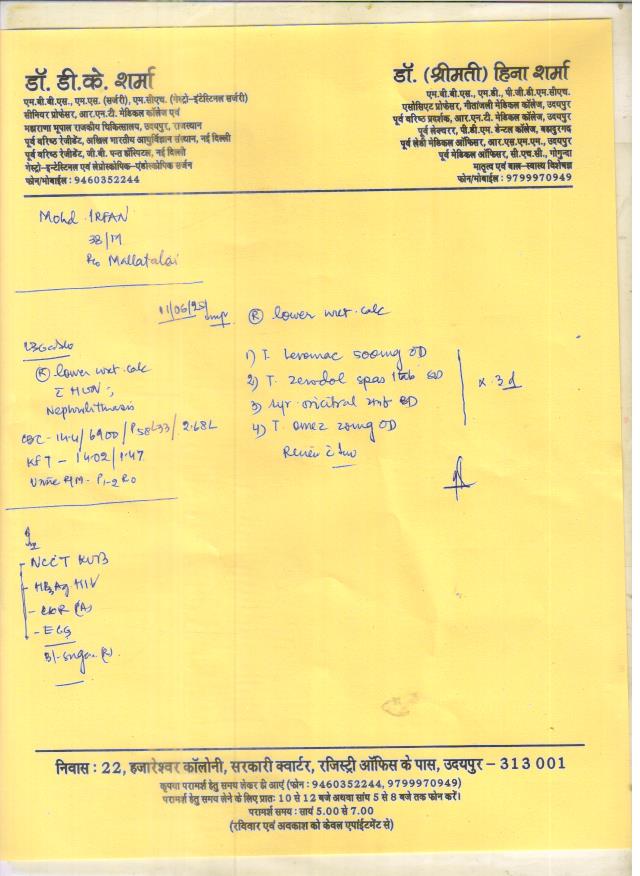 डॉ. डी.के. शर्मा
एम.बी.बी.एस., एम.एस. (सर्जरी), एम.सीएच. (गेस्ट्रो-इंटेस्टिनल सर्जरी)
सीनियर प्रोफेसर, आर.एन.टी. मेडिकल कॉलेज एवं
महाराणा भूपाल राजकीय चिकित्सालय, उदयपुर, राजस्थान
पूर्व वरिष्ठ रेजीडेंट, अखिल भारतीय आयुर्विज्ञान संस्थान, नई दिल्ली
पूर्व वरिष्ठ रेजीडेंट, जी.बी. पन्त हॉस्पिटल, नई दिल्ली
गेस्ट्रो-इन्टेस्टिनल एवं लेप्रोस्कोपिक-एंडोस्कोपिक सर्जन
फोन/मोबाईल : 9460352244
डॉ. (श्रीमती) हिना शर्मा
एम.बी.बी.एस., एम.डी., पी.जी.डी.एम.सीएच.
एसोसिएट प्रोफेसर, गीतांजली मेडिकल कॉलेज, उदयपुर
पूर्व वरिष्ठ प्रदर्शक, आर.एन.टी. मेडिकल कॉलेज, उदयपुर
पूर्व लेक्चरर, पी.डी.एम. डेन्टल कॉलेज, बहादुरगढ़
पूर्व लेडी मेडिकल ऑफिसर, आर.एस.एम.एम., उदयपुर
पूर्व मेडिकल ऑफिसर, सी.एच.सी., गोगुन्दा
मातृत्व एवं बाल-स्वास्थ्य विशेषज्ञ
फोन/मोबाईल : 9799970949
Mohd. IRFAN
38/M
R/o Mallatalai
11/06/25
Imp. Ⓡ lower uret. calc
Ⓡ lower uret. calc
HUN
Nephrolithiasis
CBC - 14.4/6900/ /2.68L
KFT - /1.47
Urine R/M - P1-2 R0
- NCCT KUB
- HBsAg HIV
- CXR (PA)
- ECG
Bl. Sugar (R)
1) T. Levomac 500mg OD
2) T. Zerodol spas 1tab BD
3) Syr. Oricitral BD
4) T. Omez 20mg OD
x 3d
Review
निवास : 22, हजारेश्वर कॉलोनी, सरकारी क्वार्टर, रजिस्ट्री ऑफिस के पास, उदयपुर – 313 001
कृपया परामर्श हेतु समय लेकर ही आएं (फोन : 9460352244, 9799970949)
परामर्श हेतु समय लेने के लिए प्रातः 10 से 12 बजे अथवा सांय 5 से 8 बजे तक फोन करें।
परामर्श समय : सायं 5.00 से 7.00
(रविवार एवं अवकाश को केवल एपॉइंटमेंट से)